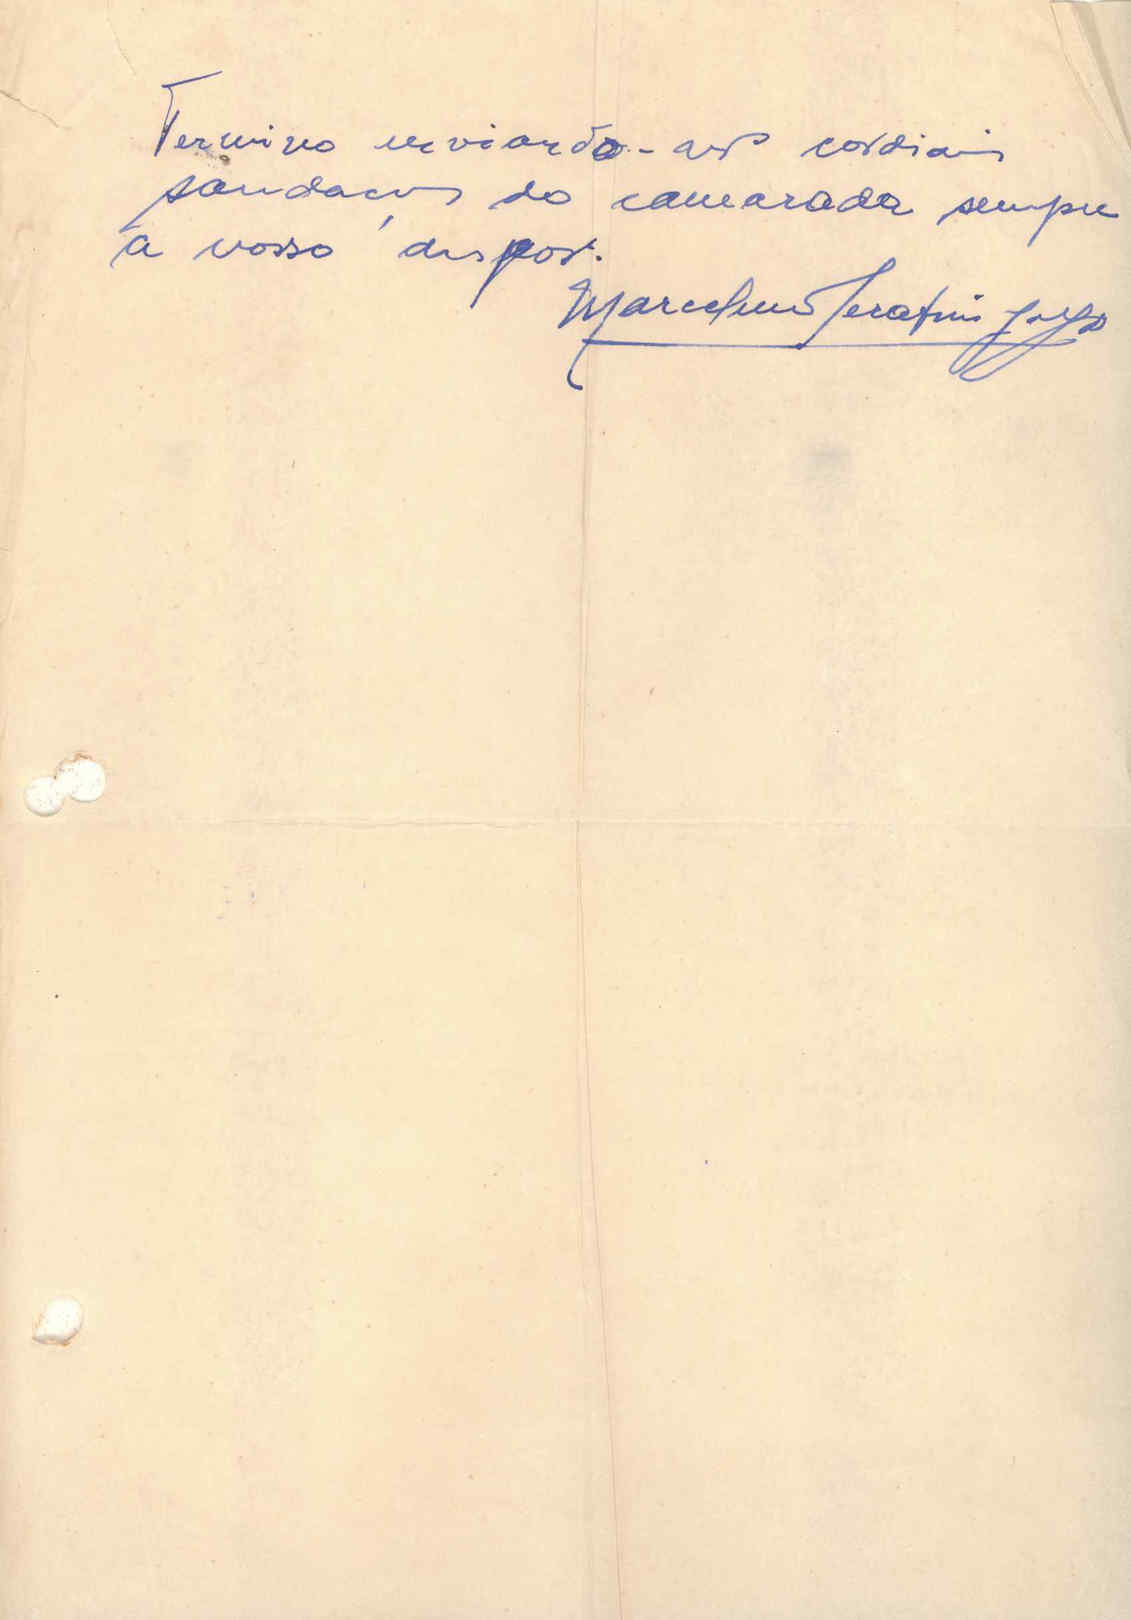 Termino enviando-vos cordiais
saudações do camarada sempre
a vosso dispor.
Marcelino Serafim